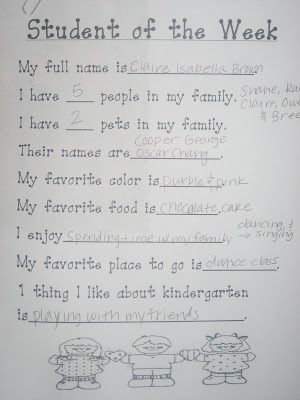 Student of the Week
My full name is Claire Isabella Brown
I have 5 people in my family. Shane,
Claire,
I have 2 pets in my family. & Bree
Cooper George
Their names are Oscar Chang.
My favorite color is Purple & pink
My favorite food is chocolate cake
dancing &
I enjoy Spending time w/ my family → singing
My favorite place to go is dance class.
1 thing I like about kindergarten
is playing with my friends.